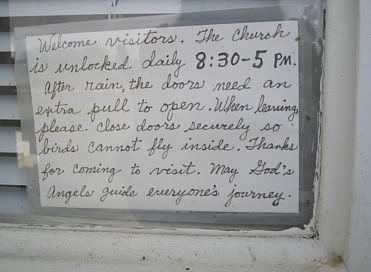 Welcome visitors. The Church
is unlocked daily 8:30-5 PM.
After rain, the doors need an
extra pull to open. When leaving,
please close doors securely so
birds cannot fly inside. Thanks
for coming to visit. May God's
Angels guide everyone's journey.